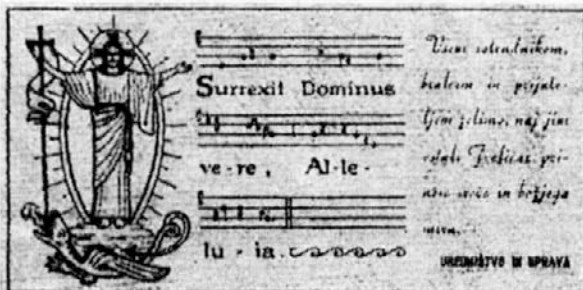 Surrexit Dominus
ve-re, Al-le-
lu - ia.
Vsem sotrudnikom,
bralcem in prijate-
ljem želimo, naj jim
vstali Zveličar pri-
in božjega
miru.
UREDNIŠTVO IN UPRAVA